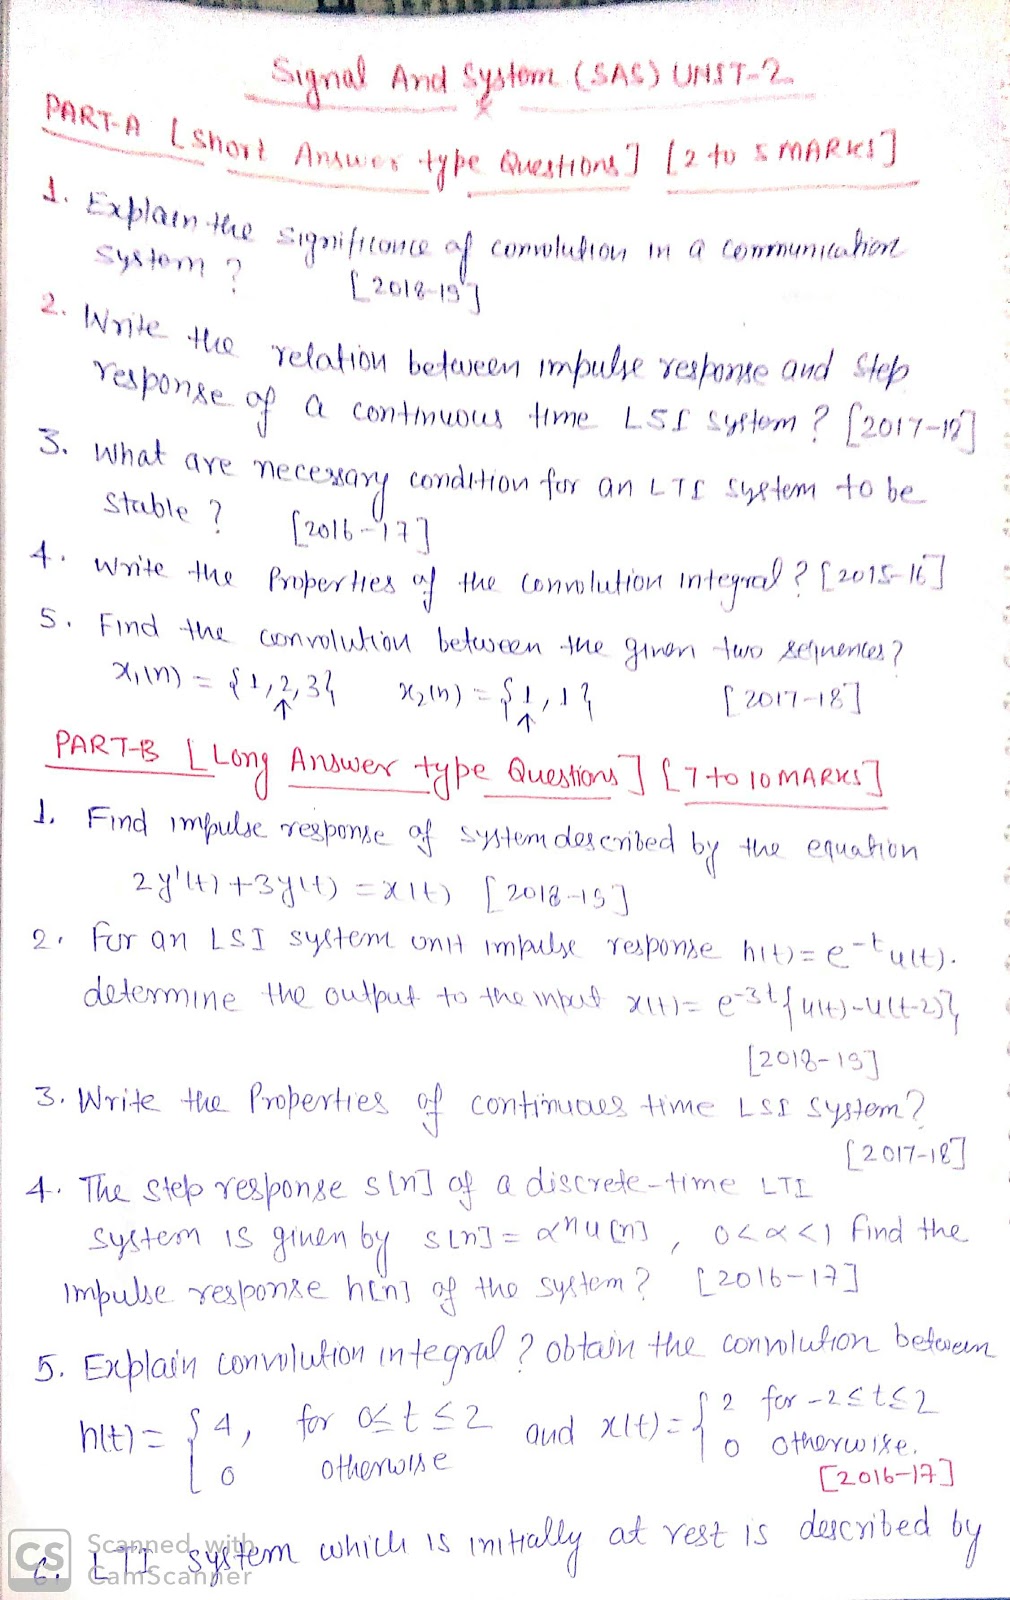 Signal And System (SAS) UNIT-2
PART-A [Short Answer type Questions] [2 to 5 MARKS]
1. Explain the significance of convolution in a communication
System ? [2018-19]
2. Write the relation between impulse response and step
response of a continuous time LSI System ? [2017-18]
3. What are necessary condition for an LTI system to be
Stable ? [2016-17]
4. Write the Properties of the convolution integral ? [2015-16]
5. Find the convolution between the given two sequences ?
x₁(n) = {1,2,3} x₂(n) = {1,1} [2017-18]
↑ ↑
PART-B [Long Answer type Questions] [7 to 10 MARKS]
1. Find impulse response of system described by the equation
2y'(t) + 3y(t) = x(t) [2018-19]
2. For an LSI system unit impulse response h(t) = e^-t u(t).
determine the output to the input x(t) = e^-3t {u(t)-u(t-2)}
[2018-19]
3. Write the Properties of continuous time LSI system ?
[2017-18]
4. The step response s[n] of a discrete-time LTI
system is given by s[n] = α^n u[n], 0<α<1 find the
impulse response h[n] of the system ? [2016-17]
5. Explain convolution integral ? obtain the convolution between
h(t) = { 4, for 0≤t≤2 and x(t) = { 2 for -2≤t≤2
0 otherwise 0 otherwise.
[2016-17]
6. LTI system which is initially at rest is described by
CS Scanned with
CamScanner